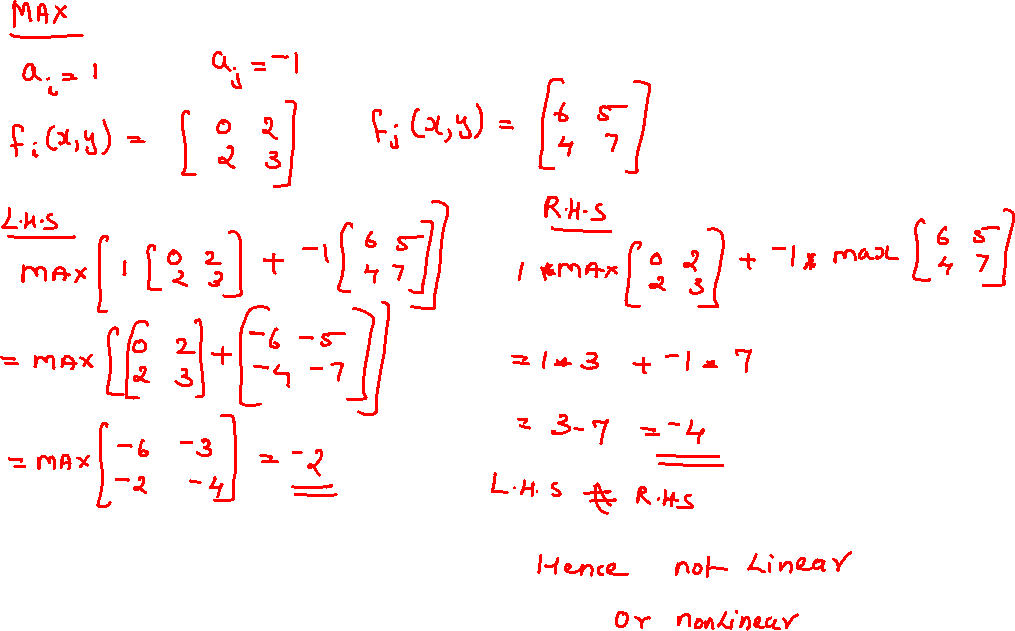 MAX
aᵢ = 1 aⱼ = -1
fᵢ(x,y) = [ 0 2 fⱼ(x,y) = [ 6 5
2 3 ] 4 7 ]
L.H.S
MAX [ 1 [ 0 2 + -1 [ 6 5
2 3 ] 4 7 ] ]
= MAX [ [ 0 2 + [ -6 -5
2 3 ] -4 -7 ] ]
= MAX [ -6 -3
-2 -4 ] = -2
R.H.S
1 * MAX [ 0 2 + -1 * max [ 6 5
2 3 ] 4 7 ]
= 1 * 3 + -1 * 7
= 3-7 = -4
L.H.S ≠ R.H.S
Hence not Linear
or nonLinear